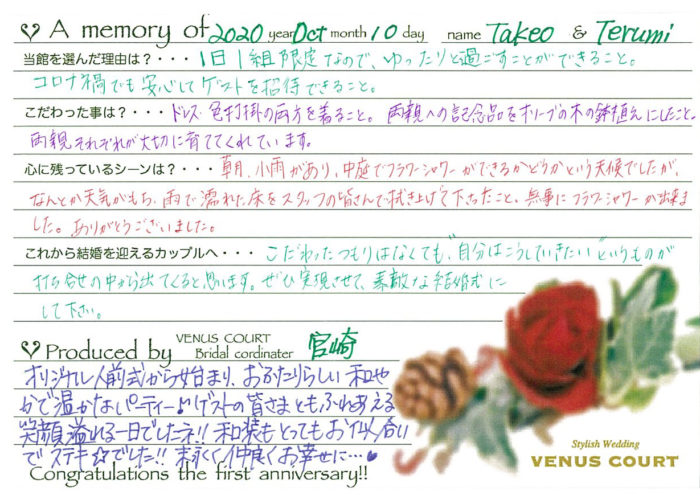 A memory of 2020 year Oct month 10 day name Takeo & Terumi
当館を選んだ理由は？・・・1日1組限定なので、ゆったりと過ごすことができること。
コロナ禍でも安心してゲストを招待できること。
こだわった事は？・・・ドレス・色打掛の両方を着ること。両親への記念品をオリーブの木の鉢植えにしたこと。
両親それぞれが大切に育ててくれています。
心に残っているシーンは？・・・朝、小雨があり、中庭でフラワーシャワーができるかどうかという天候でしたが、
なんとか天気がもち、雨で濡れた床をスタッフの皆さんで拭き上げて下さったこと、無事にフラワーシャワーが出来ま
した。ありがとうございました。
これから結婚を迎えるカップルへ・・・こだわったつもりはなくても、"自分はこうしていきたい"というものが
打ち合せの中から出てくると思います。ぜひ実現させて、素敵な結婚式に
して下さい。
Produced by VENUS COURT Bridal cordinater 宮崎
オリジナル人前式から始まり、おふたりらしい和や
かで温かなパーティー♪ゲストの皆さまともふれあえる
笑顔溢れる一日でしたネ!!和装もとってもお似合い
でステキ☆でした!!末永く仲良くお幸せに…
Congratulations the first anniversary!!
Stylish Wedding
VENUS COURT